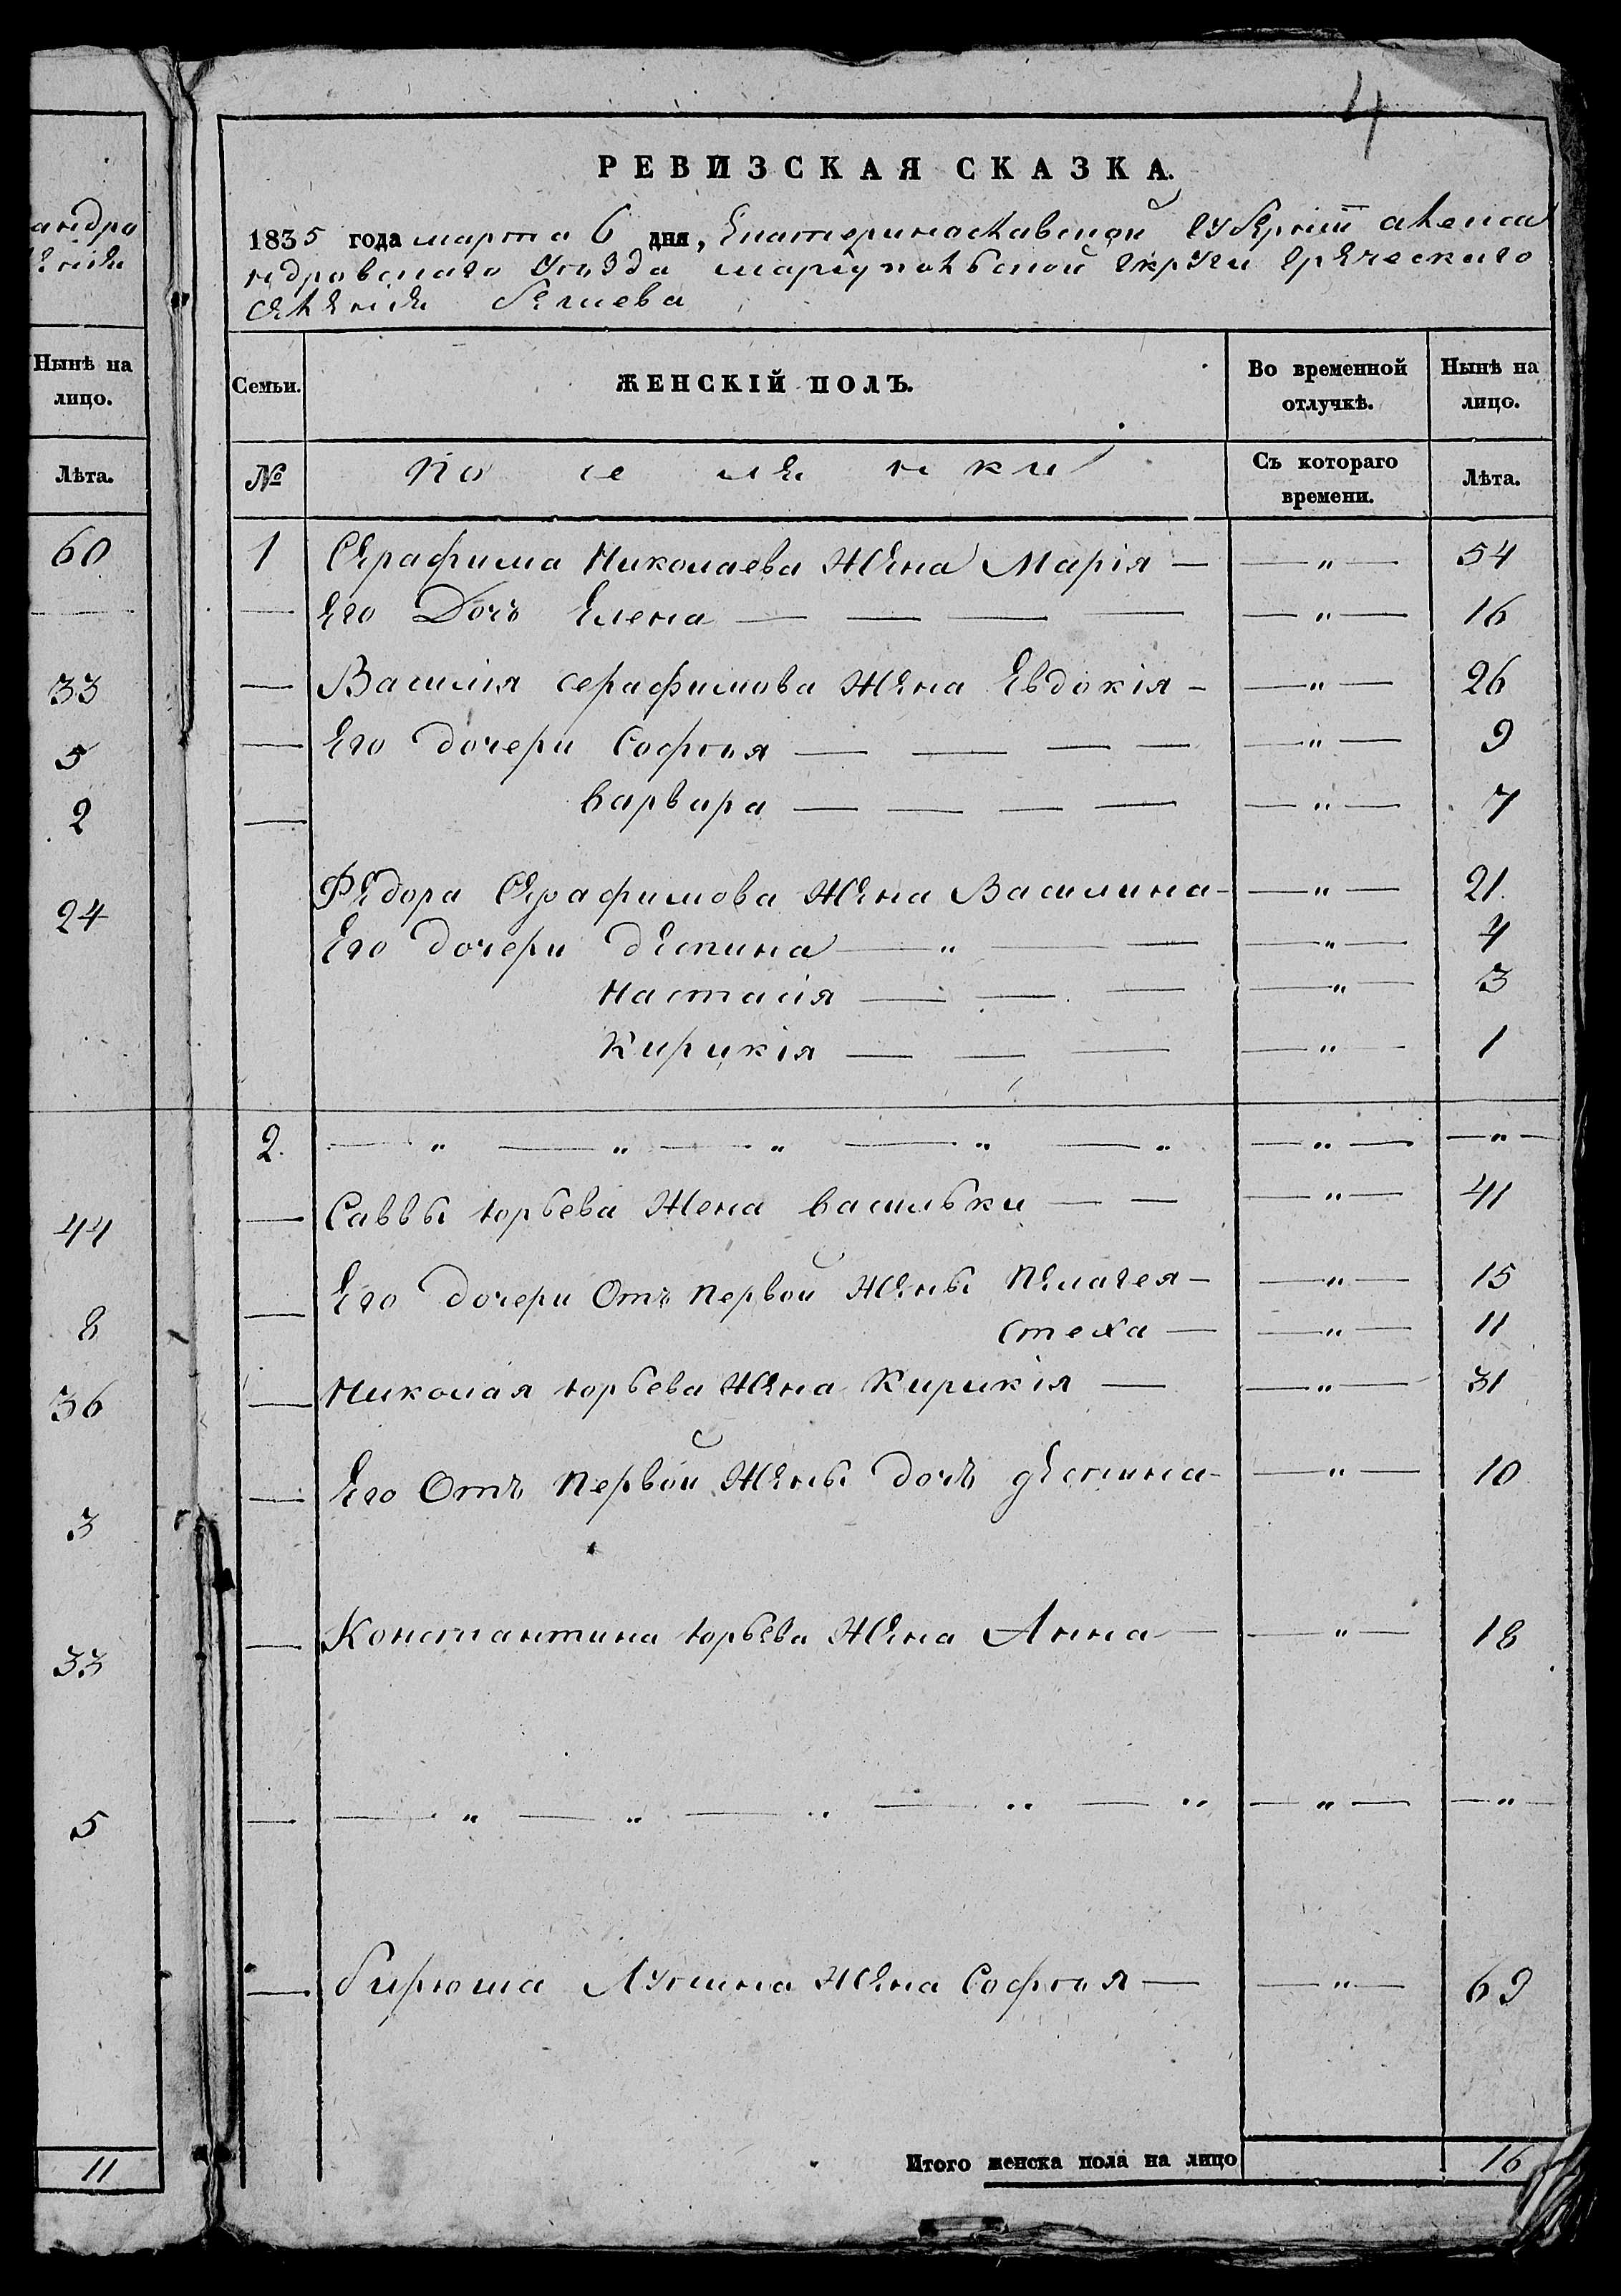 4
андра
Ныне на
лицо.
Лѣта.
60
33
5
2
24
44
8
36
3
33
5
11
РЕВИЗСКАЯ СКАЗКА.
1835 года марта 6 дня, Екатеринославской Губернии Алекса
ндровскаго Уѣзда Мариупольской округи Греческаго
селения Бешева
Семьи. ЖЕНСКІЙ ПОЛЪ. Во временной отлучкѣ. Нынѣ на лицо.
№ По се ля н ки Съ котораго времени. Лѣта.
1 Серафима Николаева Жена Марія — — „ — 54
— Его Дочь Елена — — — — — „ — 16
— Василія Серафимова Жена Евдокія - — „ — 26
— Его дочери Софья — — — — — „ — 9
— Варвара — — — — — „ — 7
Федора Серафимова Жена Василина - — „ — 21
Его дочери деспина — „ — — — „ — 4
Настасія — — — — „ — 3
Кирикія — — — — „ — 1
2. — „ — „ — „ — „ — „ — „ — — „ —
— Саввы Юрьева Жена василька — — — „ — 41
— Его дочери Отъ первой Жены Пелагея — — „ — 15
Стеха — — „ — 11
— Николая Юрьева Жена Кирикія — — „ — 31
— Его Отъ первой Жены дочь деспина - — „ — 10
— Константина Юрьева Жена Анна — — „ — 18
— — „ — „ — „ — „ — „ — „ — — „ —
— Жена Софья — — „ — 69
Итого женска пола на лицо 16